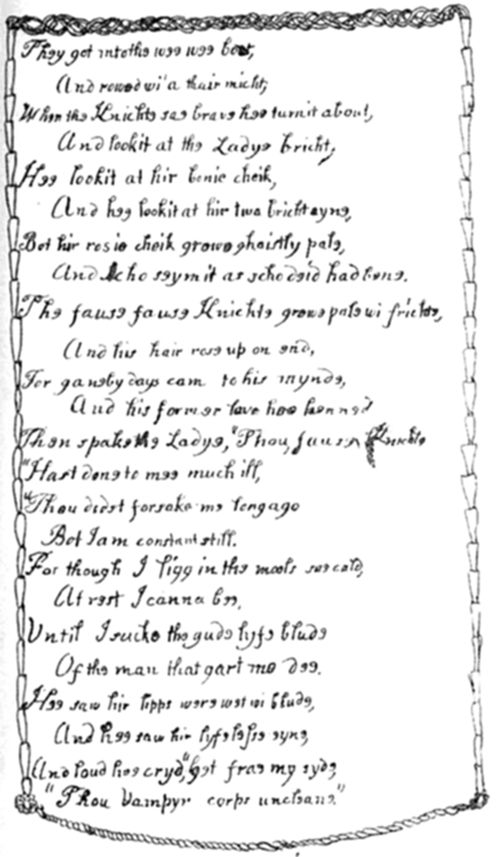 They got intothe wee wee boat,
And rowed wi'a thair micht;
When the Knichte sae brave hee turnit about,
And lookit at the Ladye bricht;
Hee lookit at hir bonie cheik,
And hee lookit at hir twa bricht eyne,
Bot hir rosie cheik growe ghaistly pale,
And scho seymit as scho deid had bene.
The fause fause Knichte growe pale wi frichte,
And his hair rose up on end,
For ganeby days cam to his mynde,
And his former love hee kenned
Then spake the Ladye, "Thou, fause Knichte
"Hast done to mee much ill,
"Thou didst forsake me long ago
Bot I am constant still.
For though I ligg in the mools sae cald,
At rest I canna bee,
Until I sucke the gude lyfe blude
Of the man that gart me dee.
Hee saw hir lipps were wet wi blude,
And hee saw hir lyfelesse eyne,
And loud hee cry'd, "get frae my syde,
"Thou Vampyr corps uncleane."